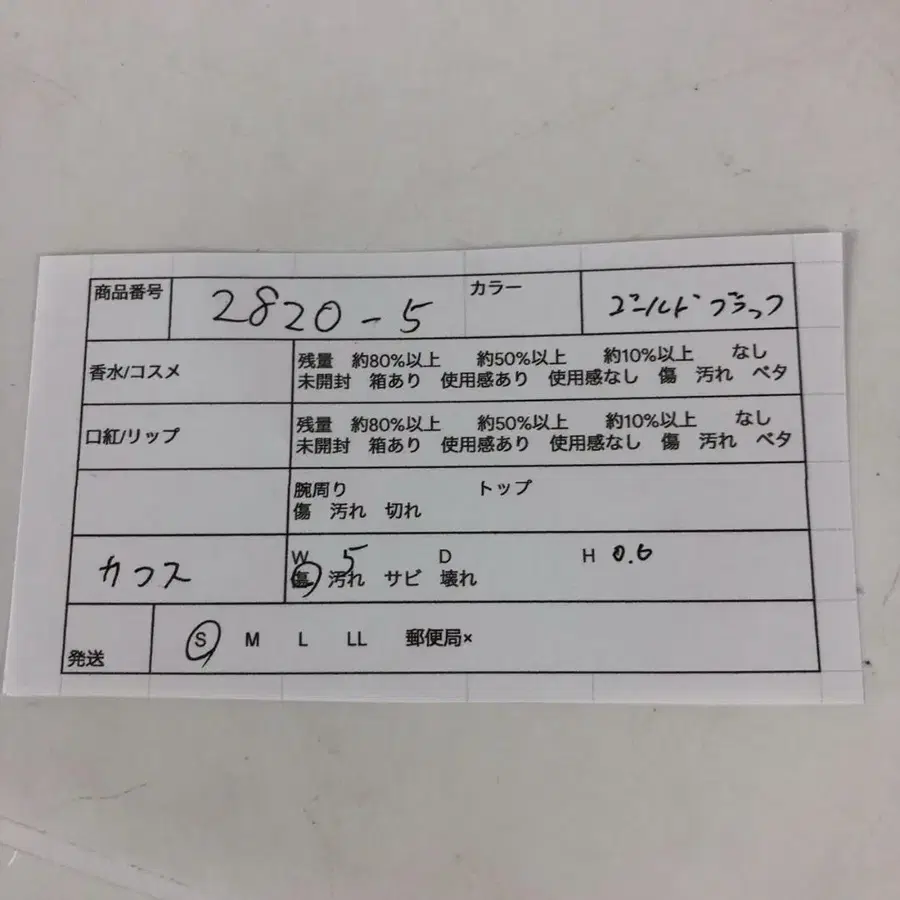 商品番号 2820-5 カラー ゴールド ブラック
香水/コスメ
残量 約80%以上 約50%以上 約10%以上 なし
未開封 箱あり 使用感あり 使用感なし 傷 汚れ ベタ
口紅/リップ
残量 約80%以上 約50%以上 約10%以上 なし
未開封 箱あり 使用感あり 使用感なし 傷 汚れ ベタ
腕周り トップ
傷 汚れ 切れ
カフス
W 5 D H 0.6
傷 汚れ サビ 壊れ
発送 S M L LL 郵便局×